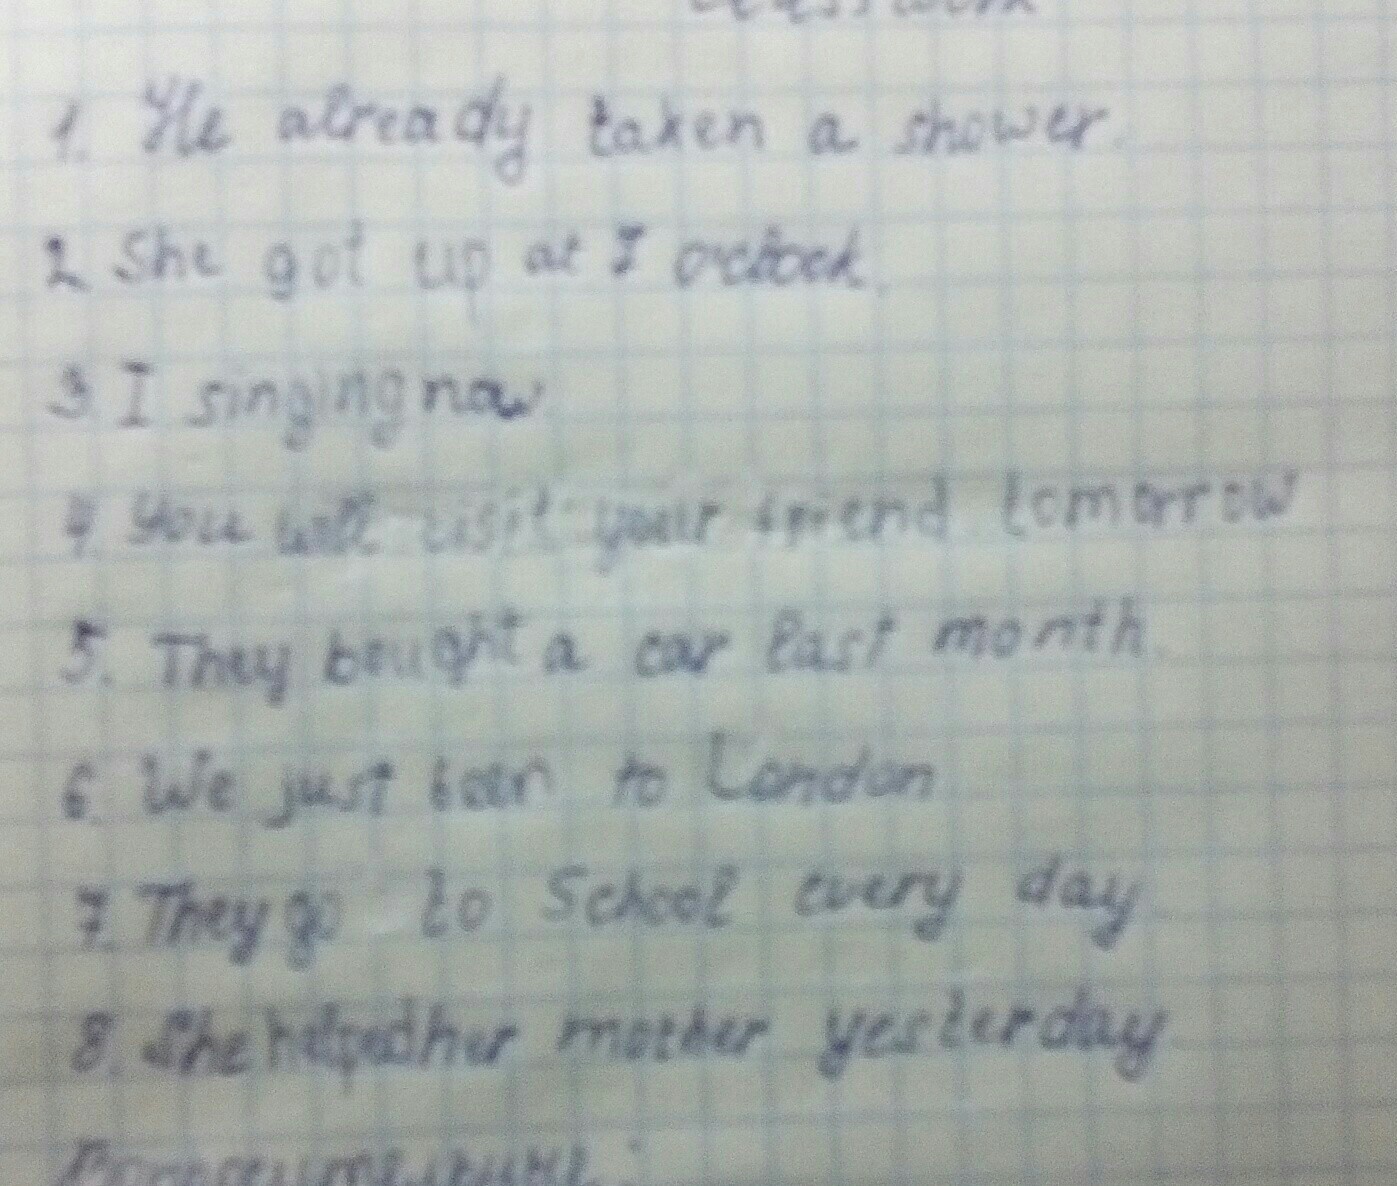 1. He already taken a shower.
2 She got up at 7 o'clock.
3. I singing now
4. You will visit your friend tomorrow
5. They bought a car last month.
6. We just been to London
7. They go to School every day
8. She helped her mother yesterday